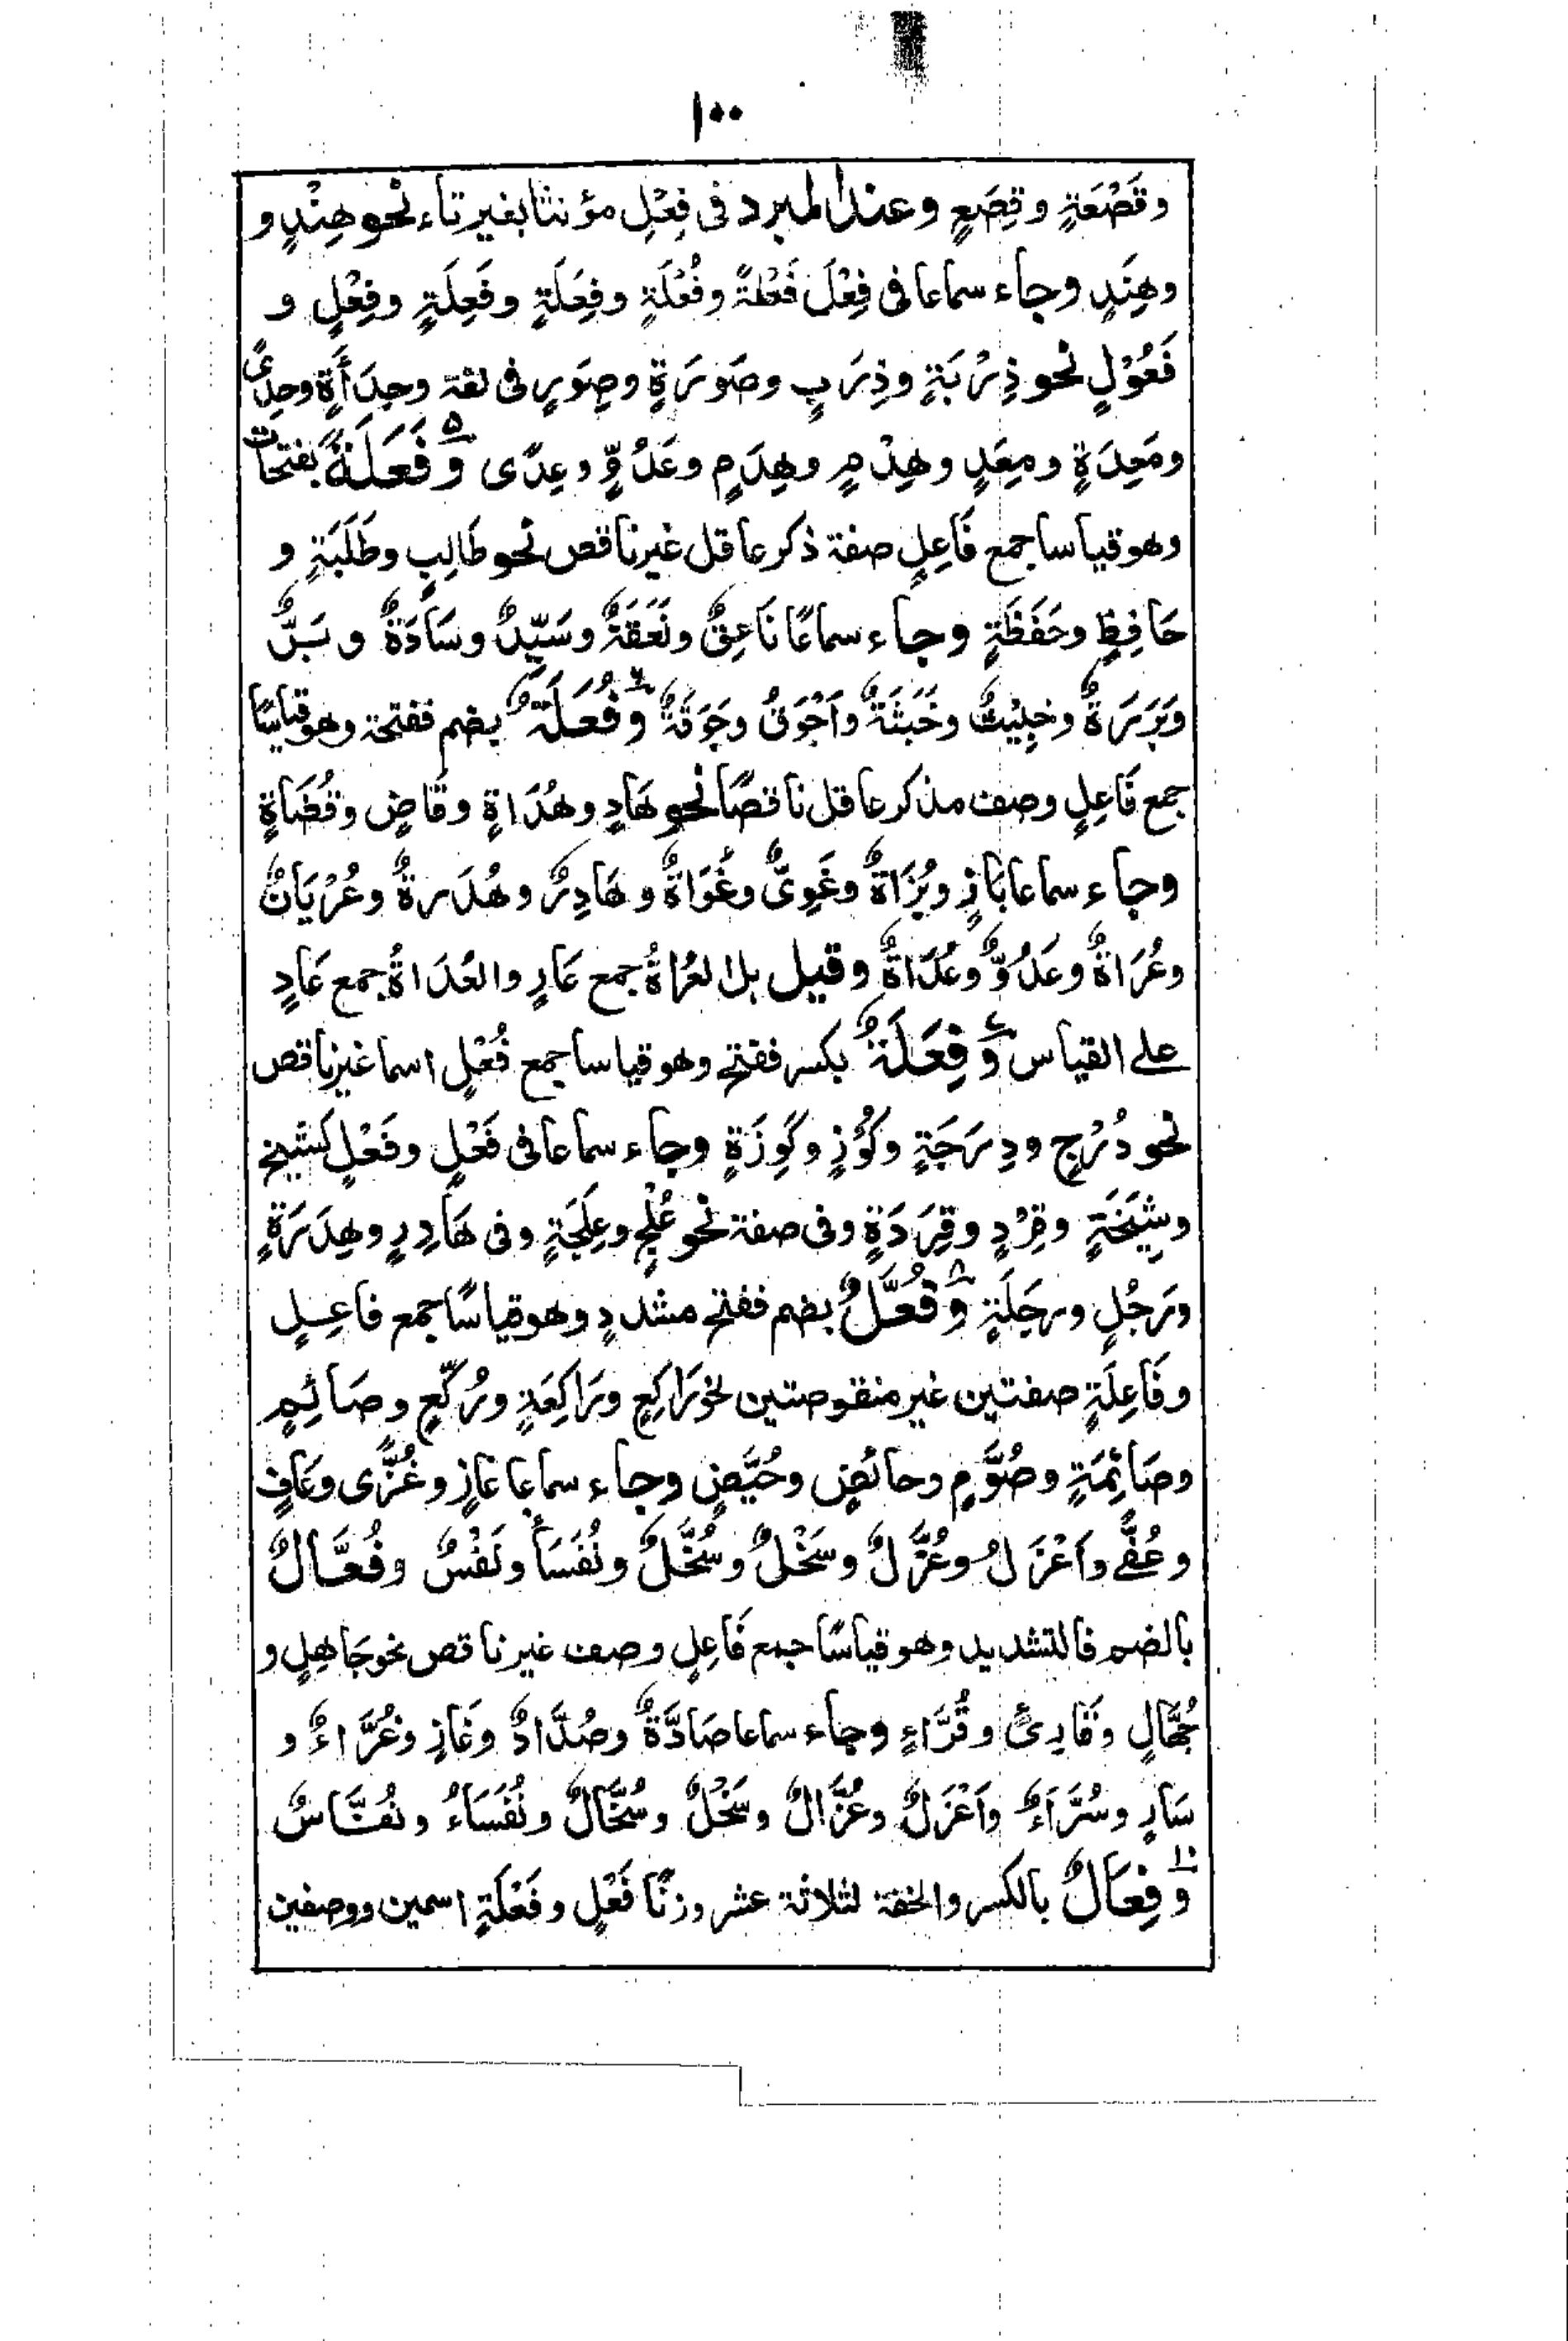 ١٠٠
وقَصْعَةٍ وقِصَعٍ وعند المبرد فى فِعْلٍ مؤنثا بغير تاء نحو هِنْدٍ و
وهِنَدٍ وجاء سماعا فى فِعْلَ فَعْلةً وفُعْلَةٍ وفِعَلَةٍ وفَعِلَةٍ وفِعْلٍ و
فَعُوْلٍ نحو ذِرْبَةٍ وذِرَبٍ وصَوْرَةٍ وصِوَرٍ فى لغة وحِدَأَةٍ وحِدًى
ومَعِدَةٍ ومِعَدٍ وهِدْمٍ وهِدَمٍ وعَدُوٍّ وعِدًى ٥ وَفَعَلَةٌ بفتحات
وهو قياسا جمع فَاعِلٍ صفة ذكر عاقل غير ناقص نحو طَالِبٍ وطَلَبَةٍ و
حَافِظٍ وحَفَظَةٍ وجاء سماعًا نَاعِقٌ ونَعَقَةٌ وسَيِّدٌ وسَادَةٌ وبَرٌّ
وبَرَرَةٌ وخَبِيْثٌ وخَبَثَةٌ وأَجْوَقُ وجَوَقَةٌ ٦ وَفُعَلَةٌ بضم ففتحة وهو قياسًا
جمع فَاعِلٍ وصف مذكر عاقل ناقصًا نحو هَادٍ وهُدَاةٍ وقَاضٍ وقُضَاةٍ
وجاء سماعا بَازٍ وبُزَاةٌ وغَوِىٌّ وغُوَاةٌ وهَادِرٌ وهُدَرةٌ وعُرْيَانٌ
وعُرَاةٌ وعَدُوٌّ وعُدَاةٌ وقيل بل العُرَاةُ جمع عَارٍ والعُدَاةُ جمع عَادٍ
على القياس ٧ وَفِعَلَةٌ بكسر ففتح وهو قياسا جمع فُعْلٍ اسما غير ناقص
نحو دُرْجٍ ودِرَجَةٍ وكُوْزٍ وكِوِزَةٍ وجاء سماعا فى فَعْلٍ وفَعْلٍ كشيخ
وشِيَخَةٍ وقِرْدٍ وقِرَدَةٍ وفى صفة نحو عُلْجٍ وعِلَجَةٍ وفى هَادِرٍ وهِدَرَةٍ
ورَجُلٍ ورِجَلَةٍ ٨ وَفُعَّلٌ بضم ففتح مشددٍ وهو قياسًا جمع فاعِلٍ
وفَاعِلَةٍ صفتين غير منقوصتين نحو رَاكِعٍ ورَاكِعَةٍ ورُكَّعٍ وصَائِمٍ
وصَائِمَةٍ وصُوَّمٍ وحائضٍ وحُيَّضٍ وجاء سماعا غازٍ وغُزًّى وعَافٍ
وعُفًّے وأَعْزَلُ وعُزَّلٌ وسَخْلٌ وسُخَّلٌ ونُفَسَاُ ونَفْسٌ وفُعَّالٌ
بالضم فالتشديد وهو قياسًا جمع فَاعِلٍ وصف غير ناقص نحو جَاهِلٍ و
جُهَّالٍ وقَارِئٍ وقُرَّاءٍ وجاء سماعا صَادَّةٌ وصُدَّادٌ وغَازٍ وغُزَّاءٌ و
سَارٍ وسُرَّاءٌ وأَعْزَلٌ وعُزَّالٌ وسَخْلٌ وسُخَّالٌ ونُفَسَاءُ ونُفَّاسٌ
١٠ وَفِعَالٌ بالكسر والخفة لثلاثة عشر وزنًا فَعْلٍ وفَعْلَةٍ اسمين ووصفين